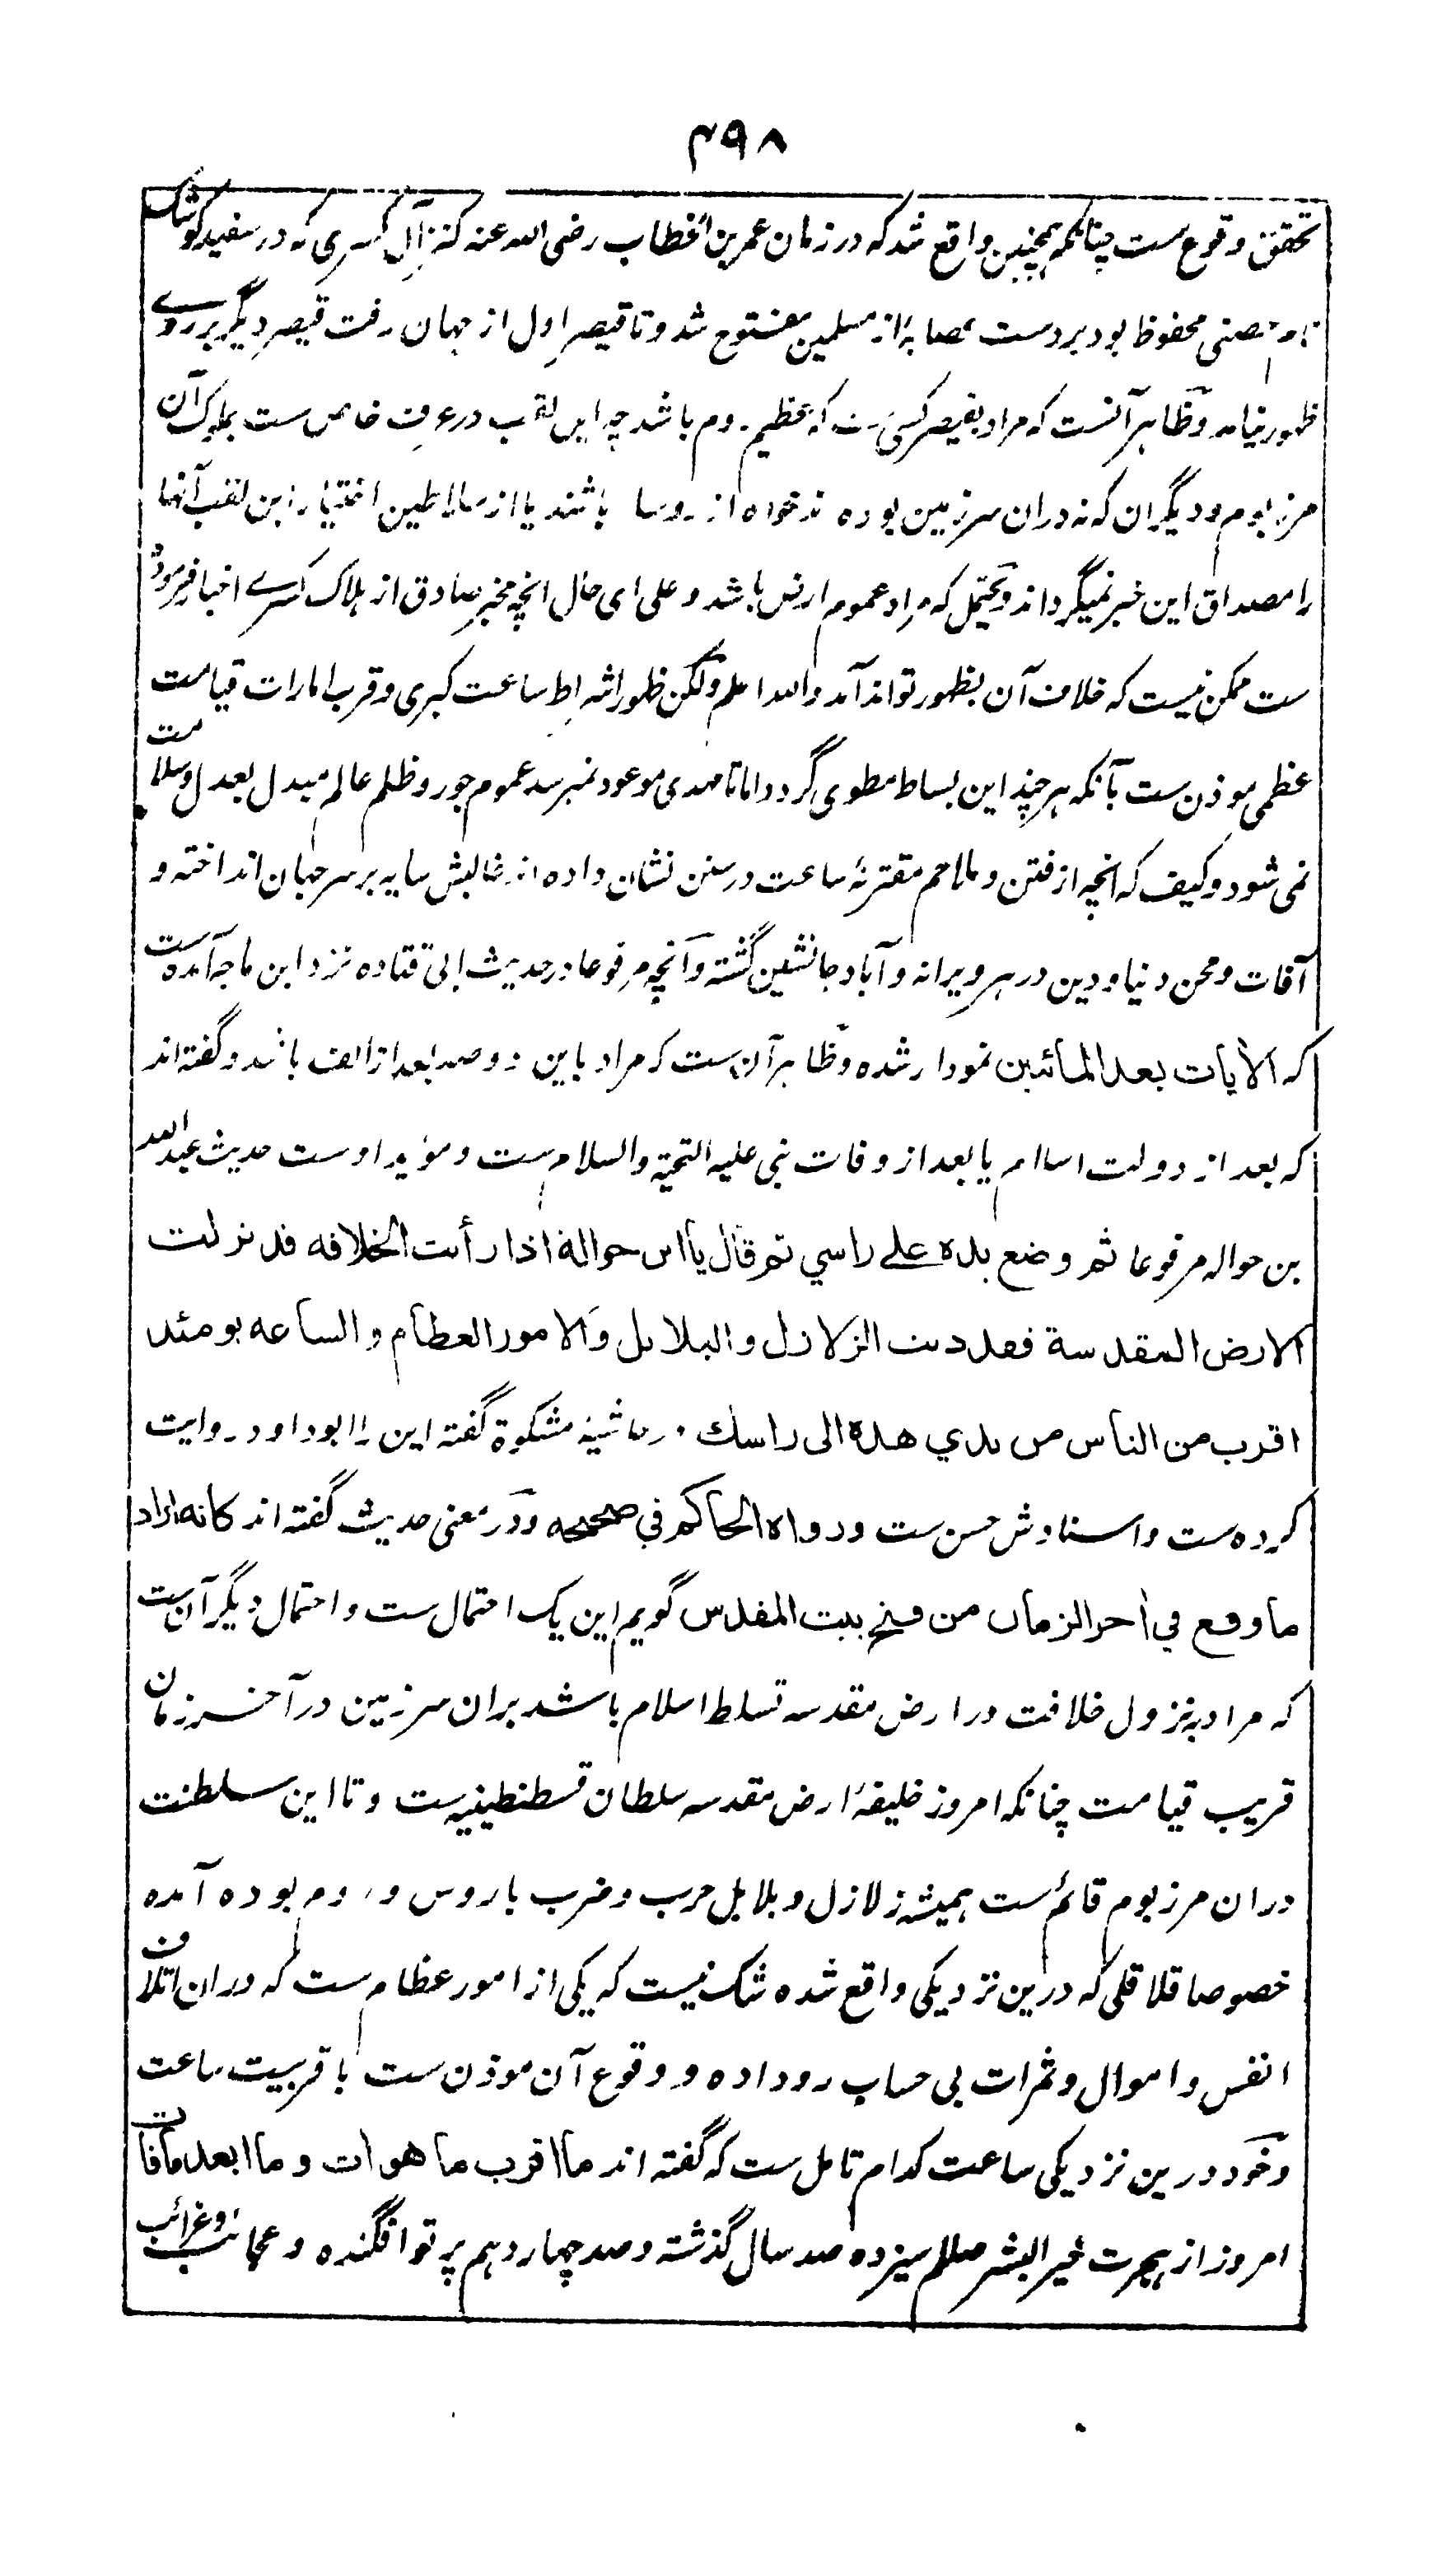 ۴۹۸
تحقق وقوع ست چنانکه همچنین واقع شد که در زمان عمر بن الخطاب رضی الله عنه کنز آل کسری که در سفید کوشک
نام حصنی محفوظ بود بر دست عصابهٔ از مسلمین مفتوح شد و تا قیصر اول از جهان رفت قیصر دیگر بر روے
ظهور نیامد و ظاهر آنست که مراد بقیصر کسی ست که عظیم روم باشد چه این لقب در عرف خاص ست بملوک آن
مرز بوم و دیگران که نه دران سرزمین بوده ند خواه از روسا باشند یا از سلاطین اختیار این لقب آنها
را مصداق این خبر نمیگرداند و یحتمل که مراد عموم ارض باشد و علی ای حال انچه مخبر صادق از هلاک کسرے اخبار فرموده
ست ممکن نیست که خلاف آن بظهور تواند آمد والله اعلم ولکن ظهور اشراط ساعت کبری و قرب امارات قیامت
عظمی موذن ست بآنکه هر چند این بساط مطوی گردد اما تا مهدی موعود نمیرسد عموم جور و ظلم عالم مبدل بعدل و سلامت
نمی شود و کیف که انچه از فتن و ملاحم مقترنهٔ ساعت در سنن نشان داده اند غالبش سایه بر سر جهان انداخته و
آفات و محن دنیا و دین در هر ویرانه و آباد جانشین گشته و آنچه مرفوعا در حدیث ابی قتاده نزد ابن ماجه آمده ست
که الآیات بعد المائتین نمودار شده و ظاهر آن ست که مراد باین دو صد بعد از الف باشد و گفته اند
که بعد از دولت اسلام یا بعد از وفات نبی علیه التحیة والسلام ست و مؤید اوست حدیث عبد الله
بن حواله مرفوعا ثم وضع یده علی راسي ثم قال یا ابن حوالة اذا رأیت الخلافه قد نزلت
الارض المقدسة فقد دنت الزلازل والبلابل والامور العظام والساعه یومئذ
اقرب من الناس من یدي هذه الی راسك در حاشیهٔ مشکوة گفته این را ابوداود روایت
کرده ست و اسنادش حسن ست ورواه الحاکم في صحیحه و در معنی حدیث گفته اند کانه اراد
ما وقع في آخر الزمان من فتح بیت المقدس گویم این یک احتمال ست و احتمال دیگر آن ست
که مراد بنزول خلافت در ارض مقدسه تسلط اسلام باشد بران سرزمین در آخر زمان
قریب قیامت چنانکه امروز خلیفهٔ ارض مقدسه سلطان قسطنطینیه ست و تا این سلطنت
دران مرز بوم قائم ست همیشه زلازل و بلابل حرب و ضرب با روس و روم بوده آمده
خصوصا قلاقلی که درین نزدیکی واقع شده شک نیست که یکی از امور عظام ست که دران اتلاف
انفس و اموال و ثمرات بی حساب روداده و وقوع آن موذن ست با قربیت ساعت
و خود درین نزدیکی ساعت کدام تامل ست که گفته اند ما اقرب ما هو آت وما ابعد ما فات
امروز از هجرت خیر البشر صللم سیزده صد سال گذشته و صد چهاردهم پرتو افگنده و عجائب و غرائب